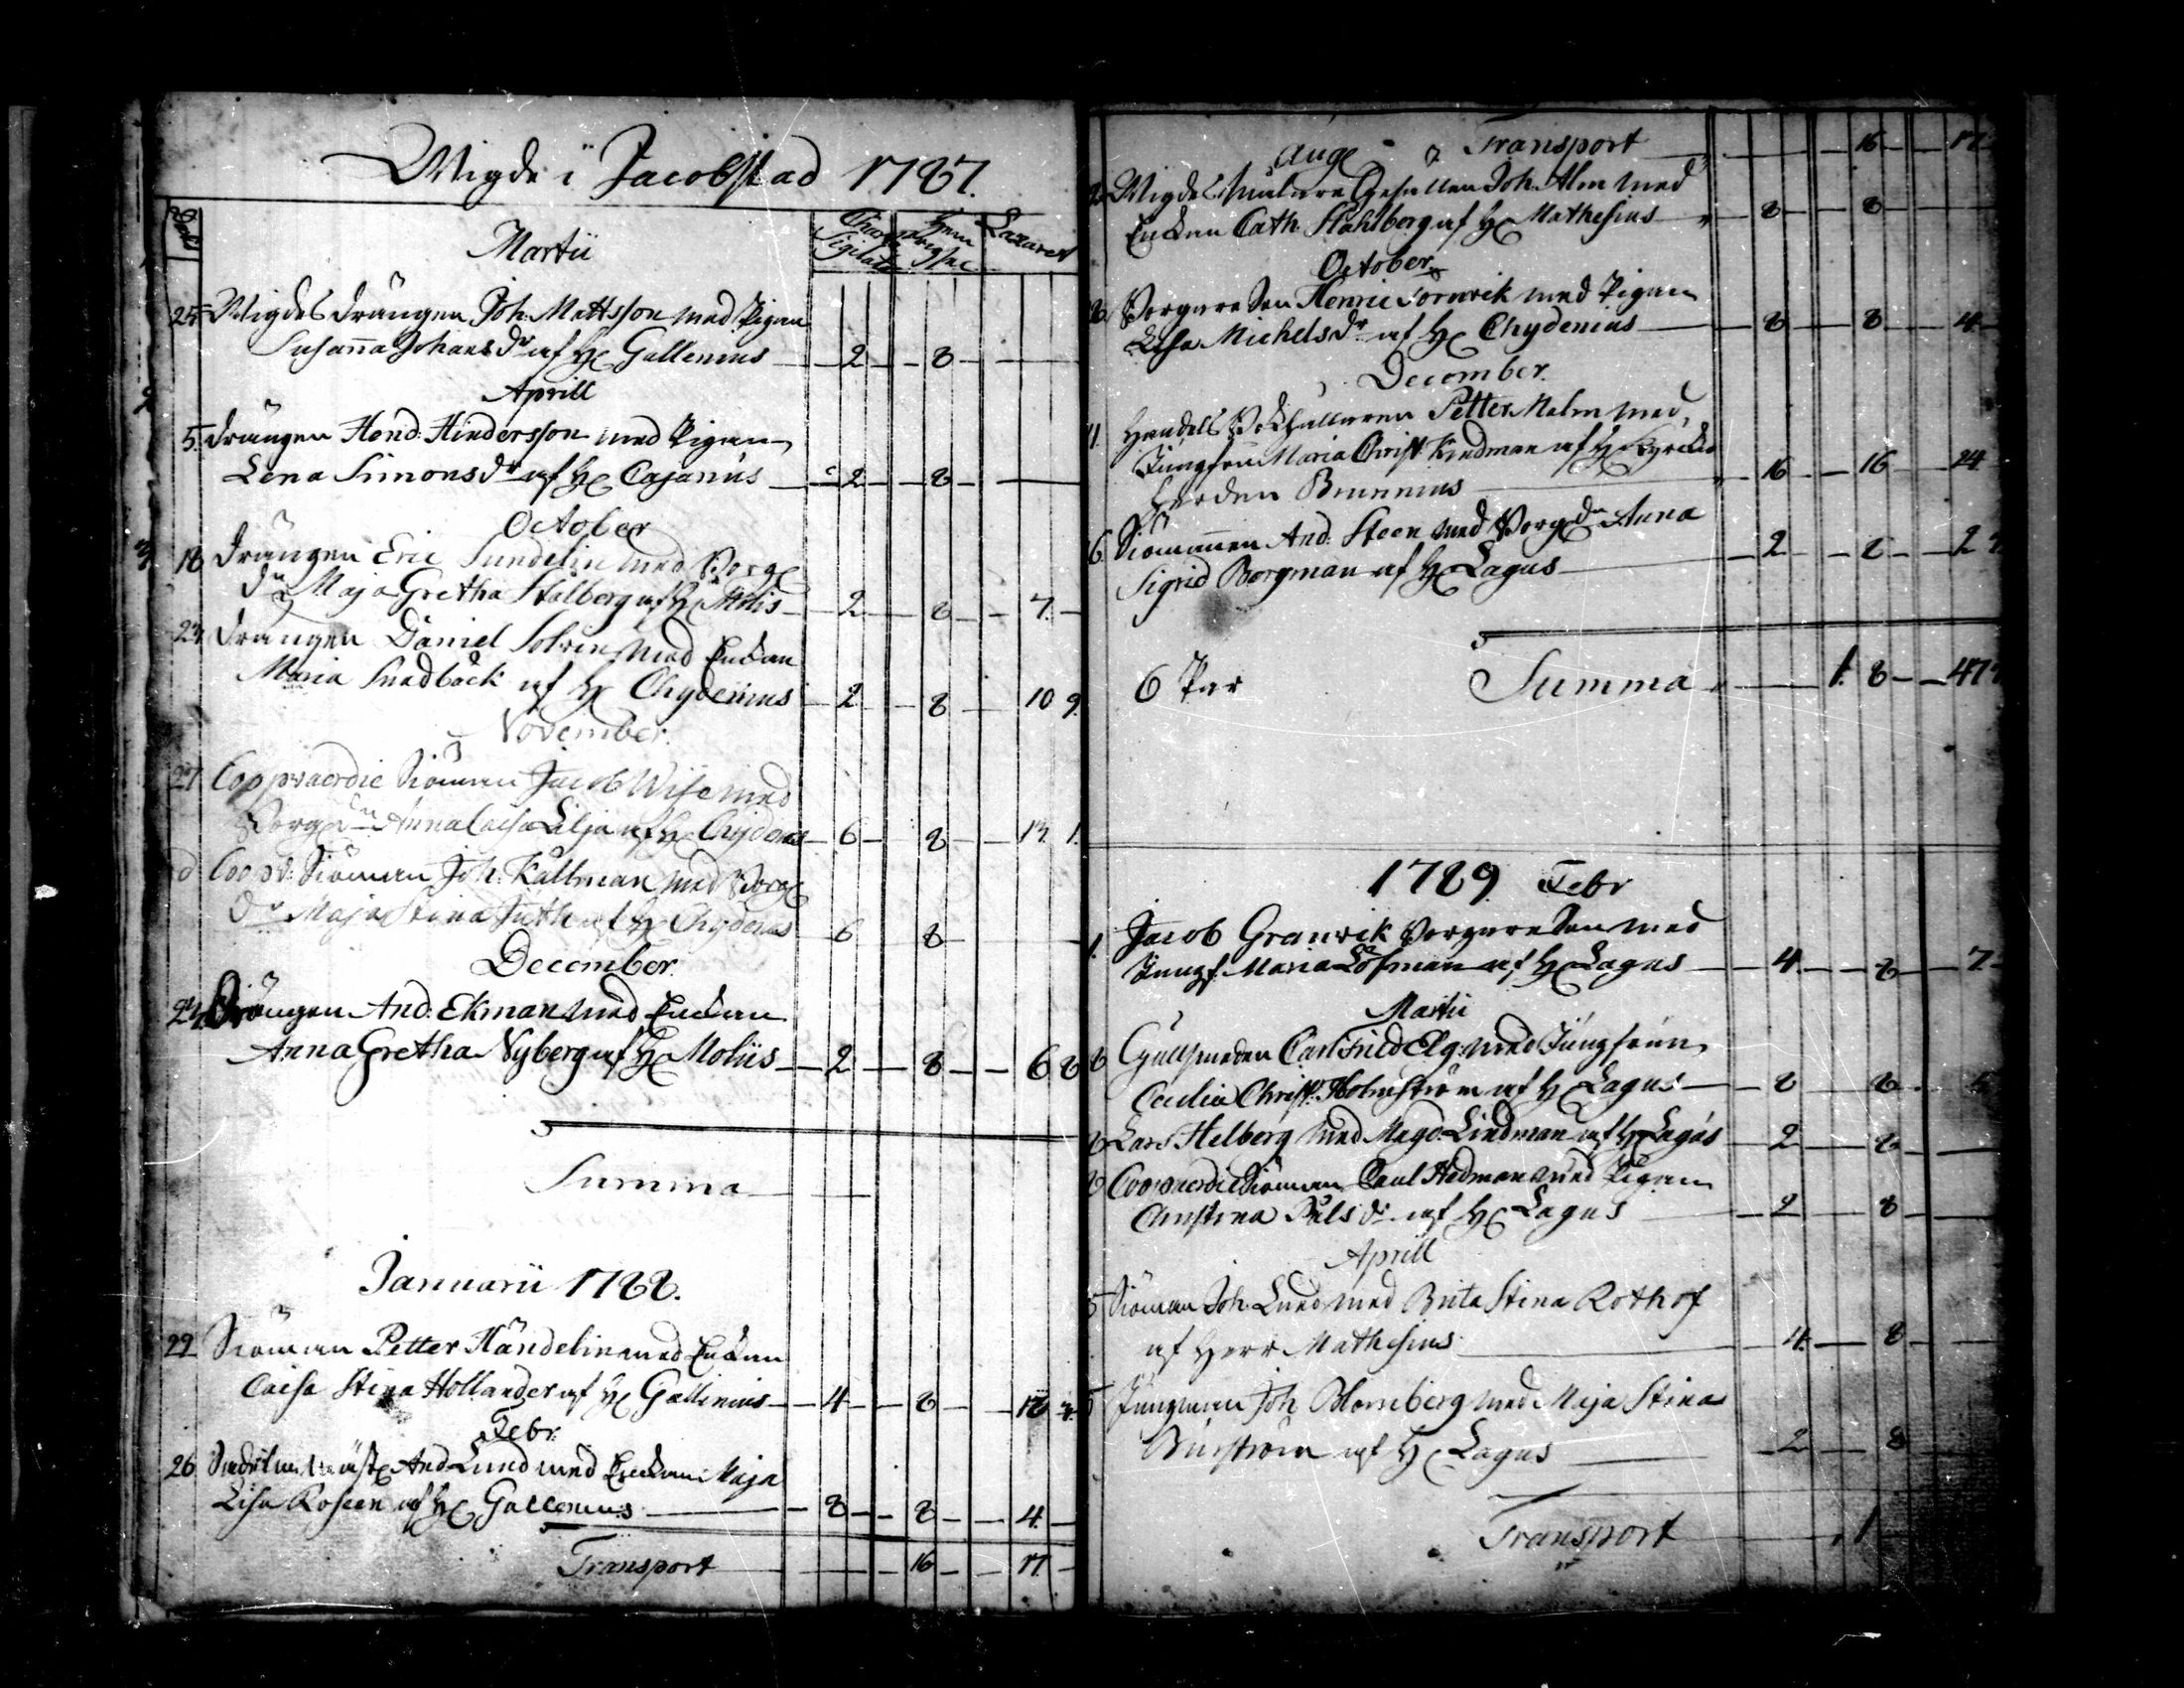 Wigde i Jacobstad 1787.
Charta Sigillata
Lazaret
Martii
25 Wigdes drängen Joh. Mattsson med Pigan
Susanna Johans dr af H Gallenius 2 8
Aprill
5. drängen Hend. Hindersson med Pigan
Lena Simons dr af H Cajanus 2 8
October
18 drängen Eric Sundelin med Borg
dr Maja Gretha Stålberg af H 2 8 7.
drängen Daniel Solvin med Enckan
Maria Sundbäck af H Chydenius 2 8 10 9.
November.
27 Coopvaerdie Siöman Jacob Wise med
Borg dr Anna Caisa Lilja af H Chydenius 6 8 1.
d Coopv: Siöman Joh. Källman med Borg
dr Maja Stina af H Chydenius 6 8
December
Drängen And: Ekman med Enckan
Anna Gretha Nyberg af H 2 8 6 8
Summa
Januarii 1788.
29 Siöman Petter Händelin med Enckan
Caisa Stina Hollander af H Gallenius 4 8
Febr.
26 And Lund med Enckan Maja
Lisa Roseen af H Gallenius 8 8 4.
Transport 16 17
Transport 16 17
Aug
Wigdes Målare Gesällen Joh. Alm med
Enckan Cath. Stahlberg af H Mathesius 8 8
October
Borgare Son Henric Tornvik med Pigan
Lisa Michels dr af H Chydenius 8 8 4
December.
11. Handels Bokhållaren Petter Malm med
Jungfru Maria Christ. Kindman af H Kyrcko
Herden Brunnius 16 16 24
6. Siömannen And. Steen med Borg dr Anna
Sigrid Borgman af H Lagus 2 8 2
6 Par Summa 1. 8 47
1789 Febr
1. Jacob Granvik Borgare Son med
Jungf. Maria Löfman af H Lagus 4. 8 7
Martii
8 Carl Fried Elg med Jungfrun
Cecilia Christ. Holmström af H Lagus 8 8
8 Lars Helberg med Magd. Lindman af H Lagus 2 8
8 Coopvaerdie Siöman Paul Hedman med Pigan
Christina Påls dr af H Lagus 2 8
Aprill
5 Siöman Joh. Lund med Brita Stina Rothof
af Herr Mathesius 4. 8
5 Jungman Joh Blomberg med Maja Stina
af H Lagus 2 8
Transport 1